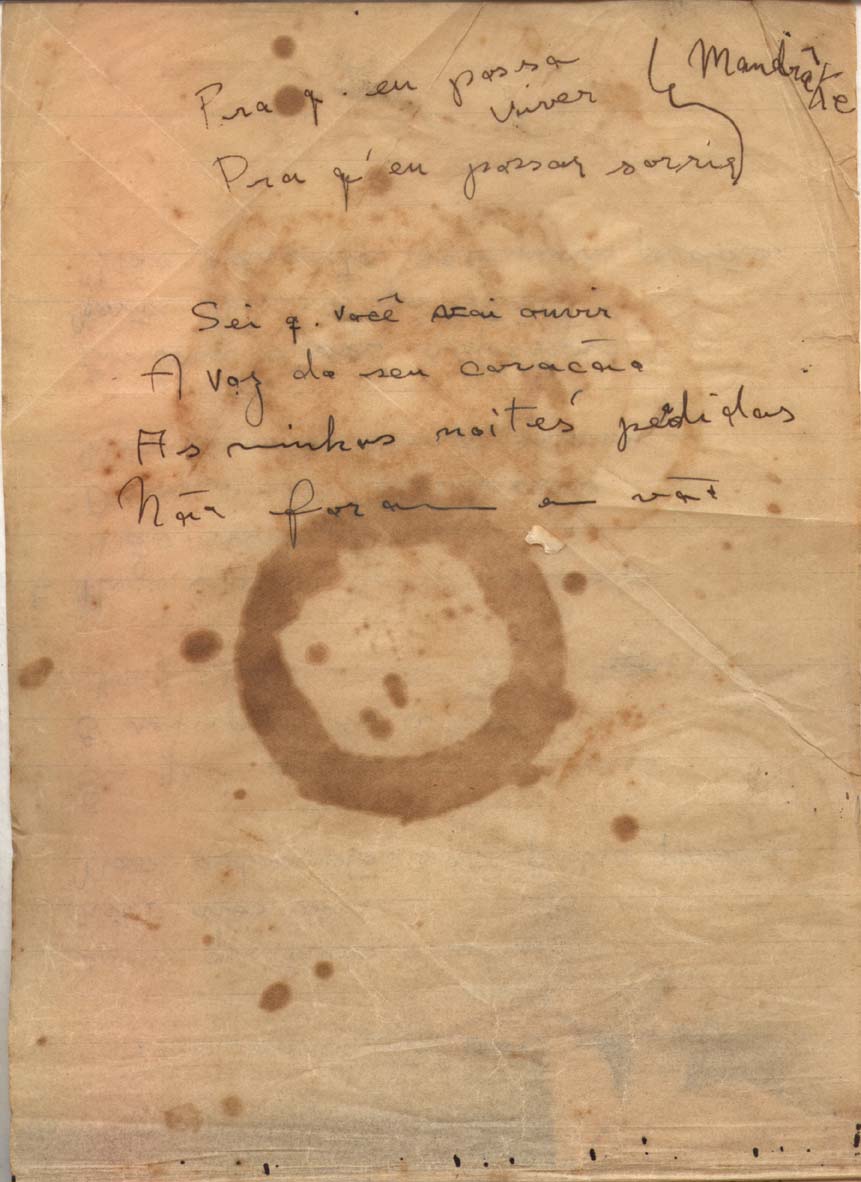 Pra q. eu possa viver
Mandrake
Pra q' eu possar sorrir
Sei q. você vai ouvir
A voz do seu coração
As minhas noites pedidas
Não foram em vão